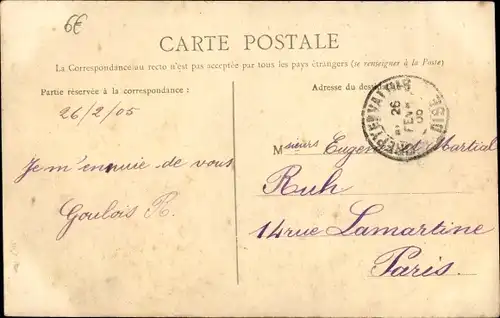 6€
CARTE POSTALE
La Correspondance au recto n'est pas acceptée par tous les pays étrangers (se renseigner à la Poste)
Partie réservée à la correspondance :
Adresse du destinataire
26/2/05
Je m'ennuie de vous
Goulois R.
26
FEVR
05
OISE
Msieurs Eugene et Martial
Ruh
14 rue Lamartine
Paris.